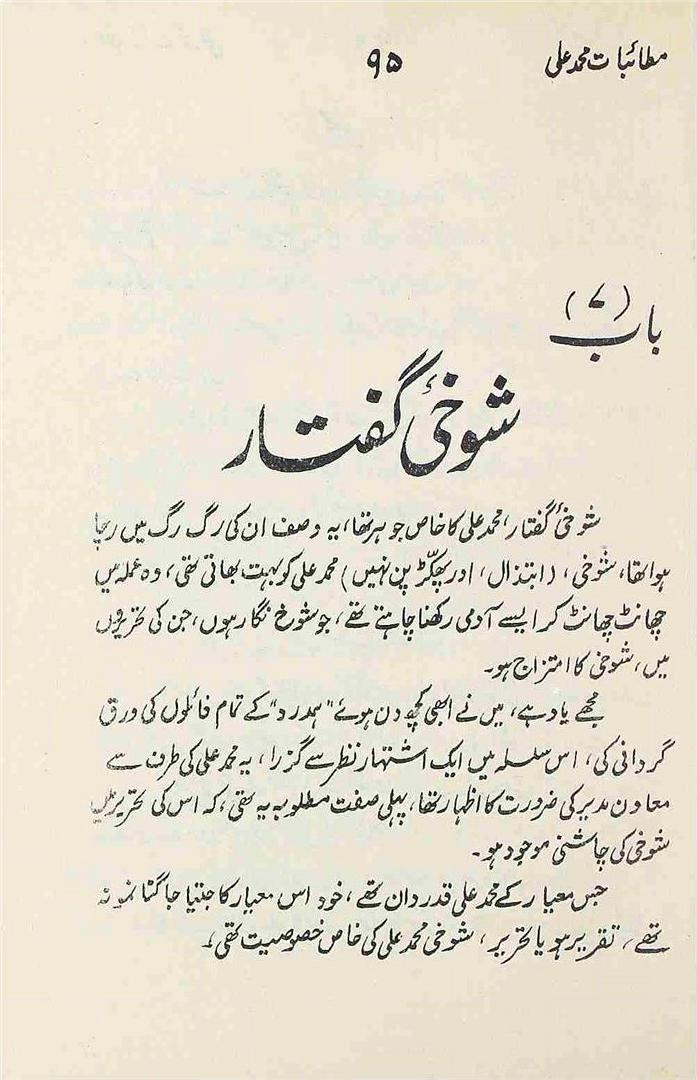 مطائبات محمد علی
۹۵
باب (۷)
شوخیٔ گفتار
شوخیٔ گفتار، محمد علی کا خاص جوہر تھا، یہ وصف ان کی رگ رگ میں رچا
ہوا تھا، شوخی، (ابتذال، اور پھکڑ پن نہیں) محمد علی کو بہت بھاتی تھی، وہ عملہ میں
چھانٹ چھانٹ کر ایسے آدمی رکھنا چاہتے تھے، جو شوخ نگار ہوں، جن کی تحریروں
میں، شوخی کا امتزاج ہو۔
مجھے یاد ہے، میں نے ابھی کچھ دن ہوئے "ہمدرد" کے تمام فائلوں کی ورق
گردانی کی، اس سلسلہ میں ایک اشتہار نظر سے گزرا، یہ محمد علی کی طرف سے
معاون مدیر کی ضرورت کا اظہار تھا، پہلی صفت مطلوبہ یہ تھی، کہ اس کی تحریر میں
شوخی کی چاشنی موجود ہو۔
جس معیار کے محمد علی قدردان تھے، خود اس معیار کا جیتا جاگتا نمونہ
تھے، تقریر ہو یا تحریر، شوخی محمد علی کی خاص خصوصیت تھی،